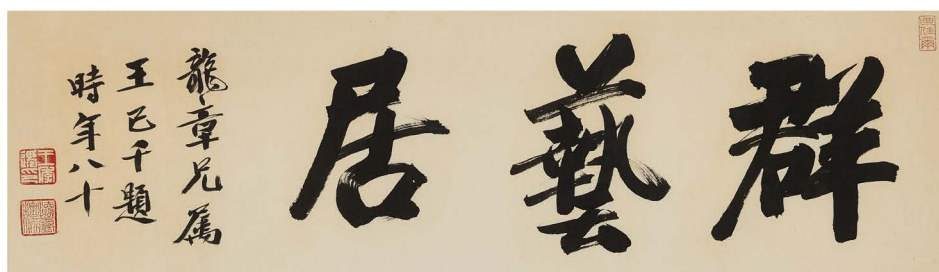 群藝居
龍章兄屬
王己千題
時年八十